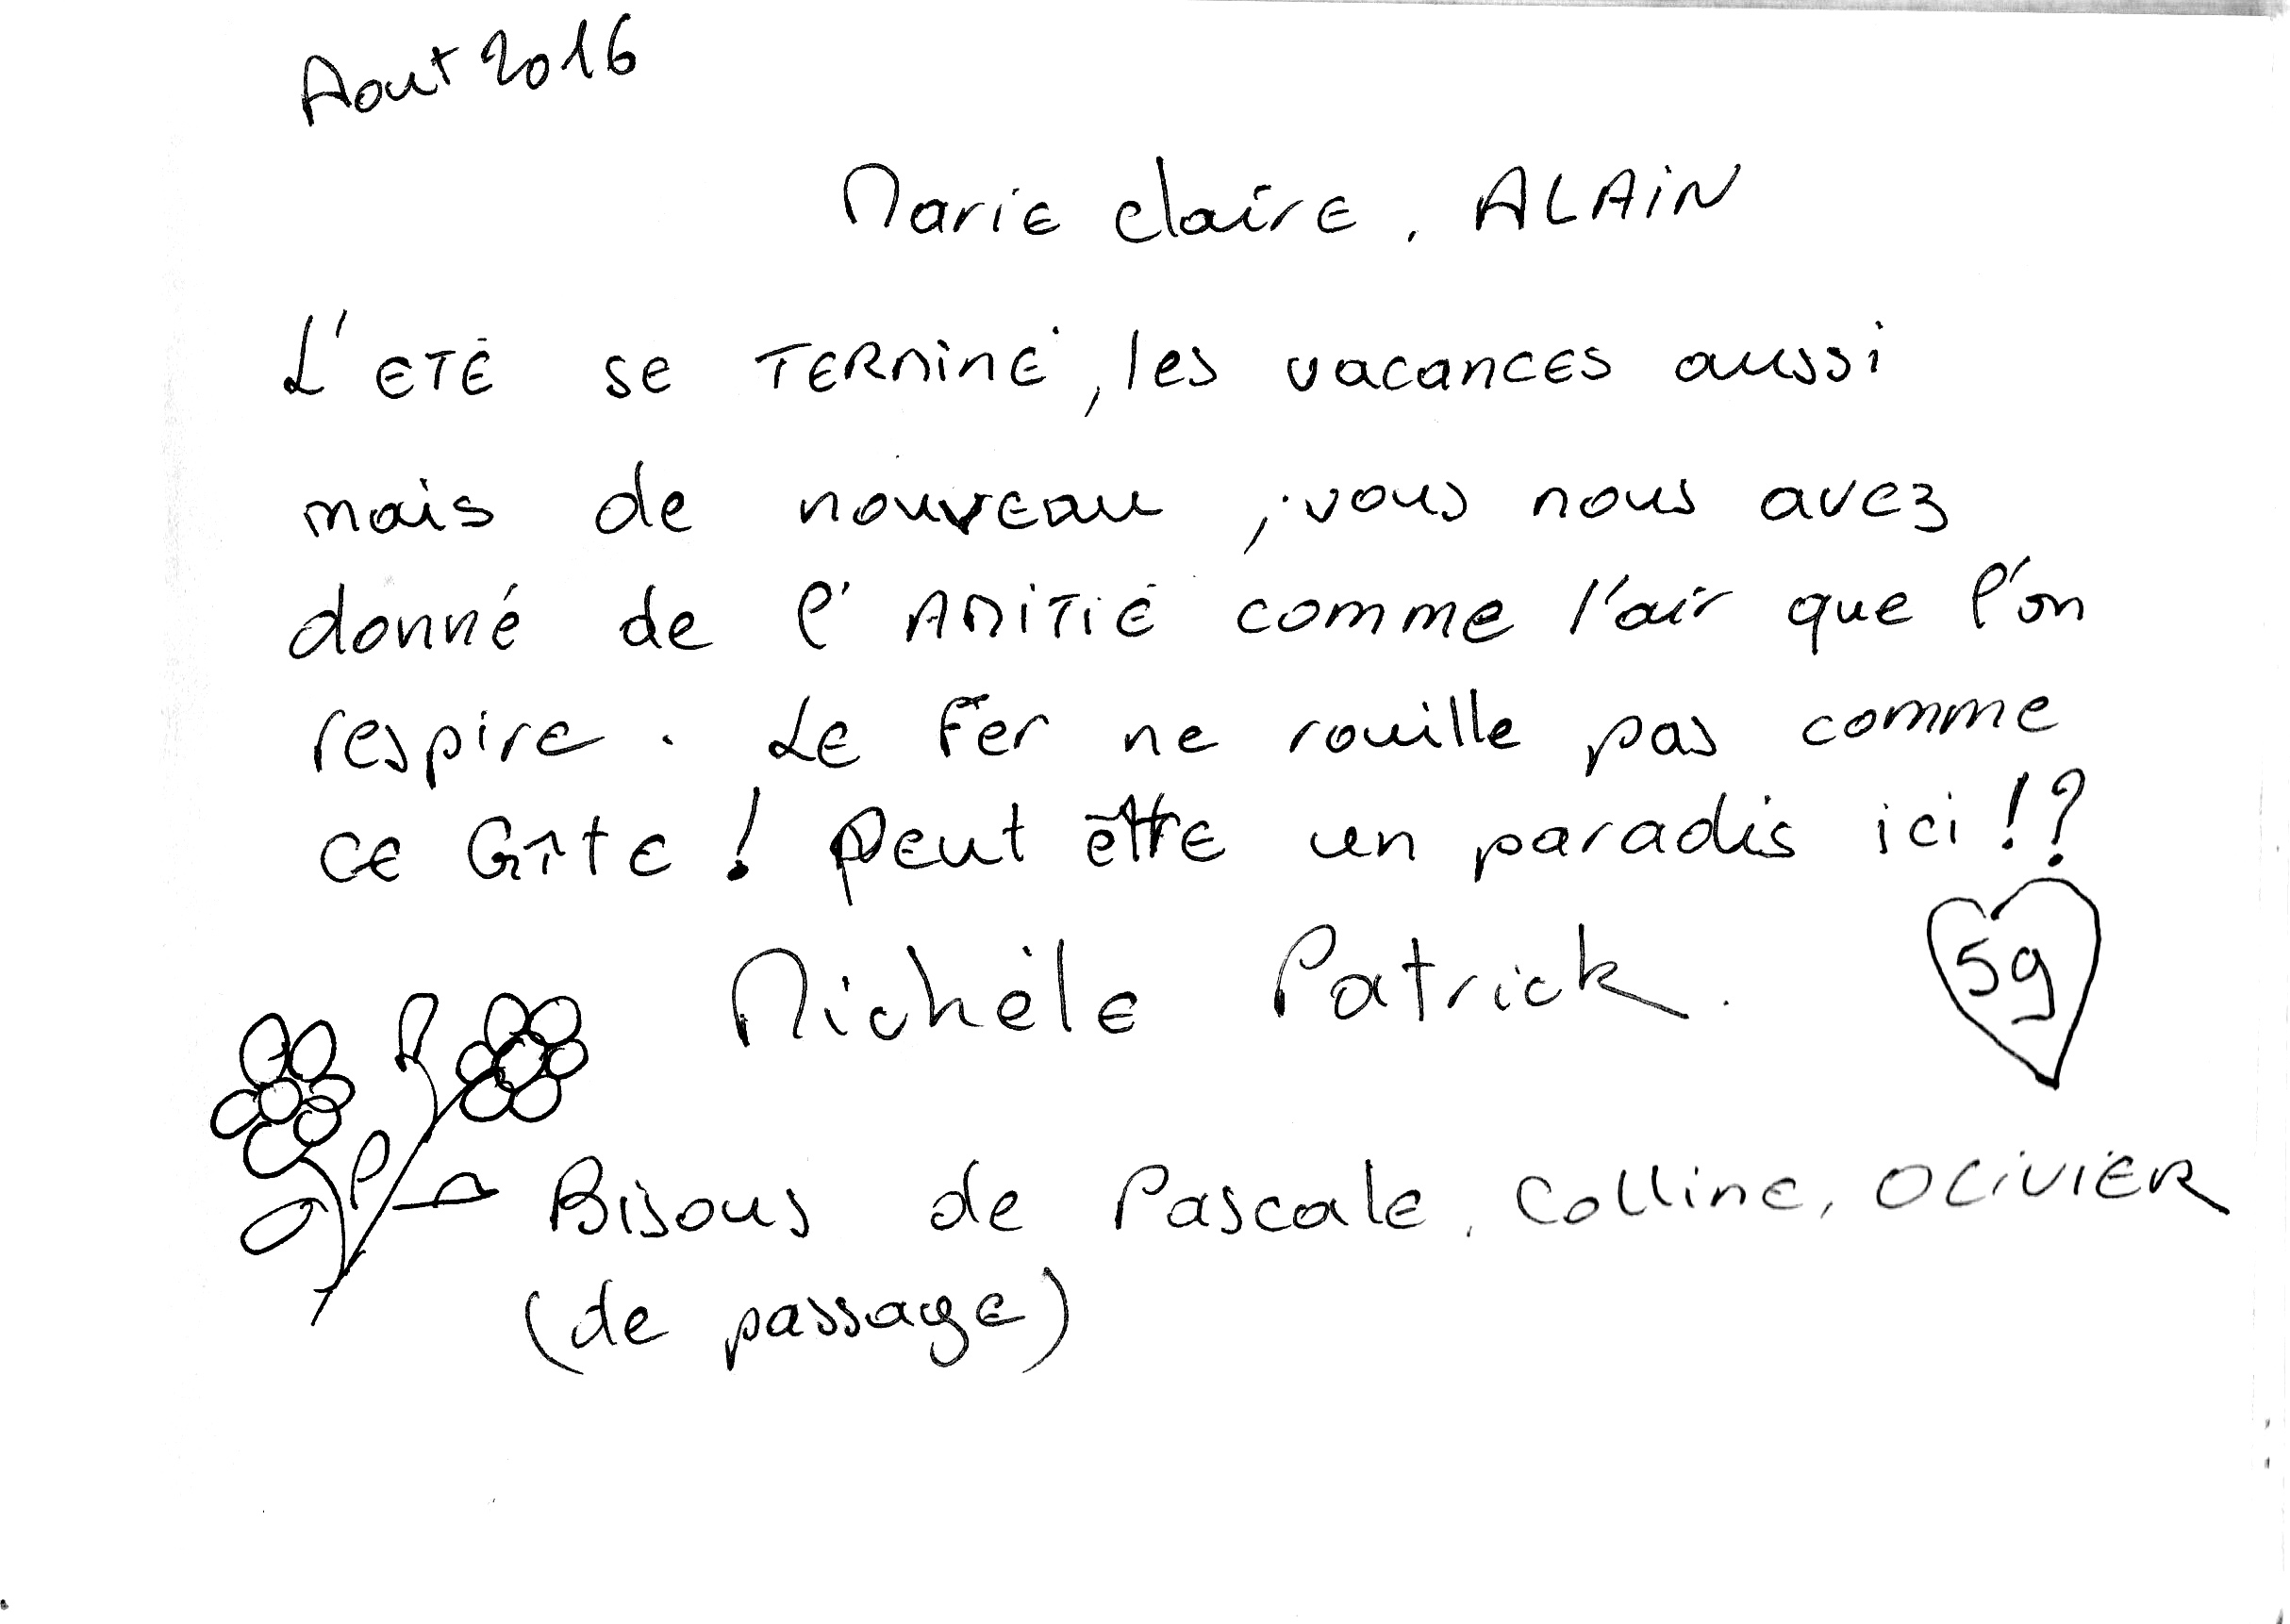 Aout 2016
Marie claire, ALAiN
L'ETÉ se TERMiNE, les vacances aussi
mais de nouveau, vous nous avez
donné de l'AMiTiÉ comme l'air que l'on
respire. Le Fer ne rouille pas comme
ce Gîte ! Peut être un paradis ici !?
Michèle Patrick.
59
Bisous de Pascale, Colline, OLiViER
(de passage)